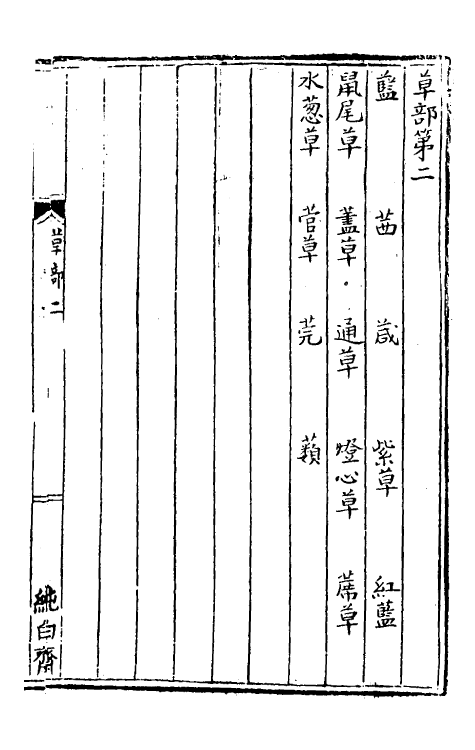 草部第二
藍　茜　葴　紫草　紅藍
鼠尾草　藎草　通草　燈心草　蓆草
水葱草　菅草　莞　蘱
草部二　一
純白齋